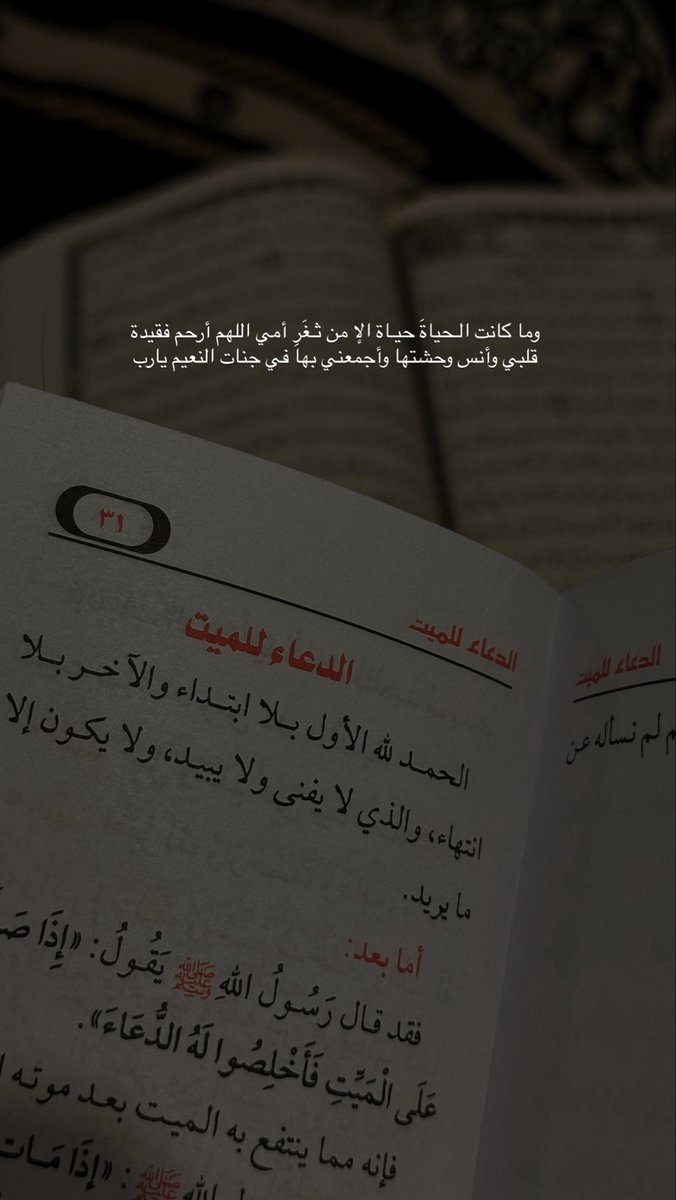 وما كانت الحياةَ حياة الإ من ثغَرِ أمي اللهم أرحم فقيدة
قلبي وأنس وحشتها وأجمعني بها في جنات النعيم يارب
٣١
الدعاء للميت
الدعاء للميت
الدعاء للميت
الحمد لله الأول بلا ابتداء والآخر بلا
انتهاء، والذي لا يفنى ولا يبيد، ولا يكون إلا
ما يريد.
أما بعد:
فقد قال رَسُولُ اللهِ ﷺ يَقُولُ: «إِذَا
عَلَى الْمَيِّتِ فَأَخْلِصُوا لَهُ الدُّعَاءَ».
فإنه مما ينتفع به الميت بعد موته
ﷺ: «إِذَا مَات
لم نسأله عن